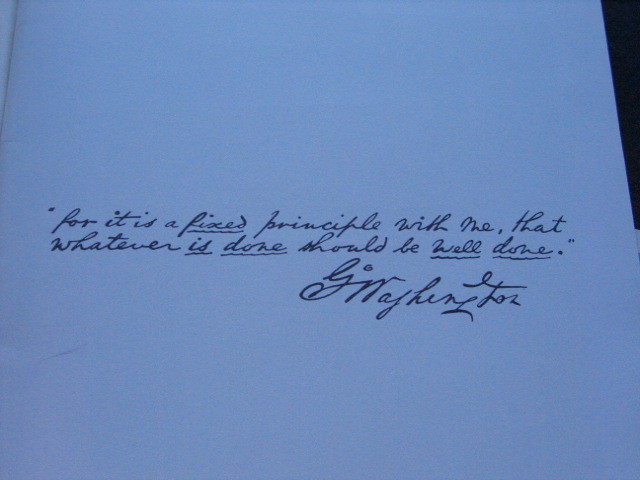 "for it is a fixed principle with me, that
whatever is done should be well done."
Go Washington